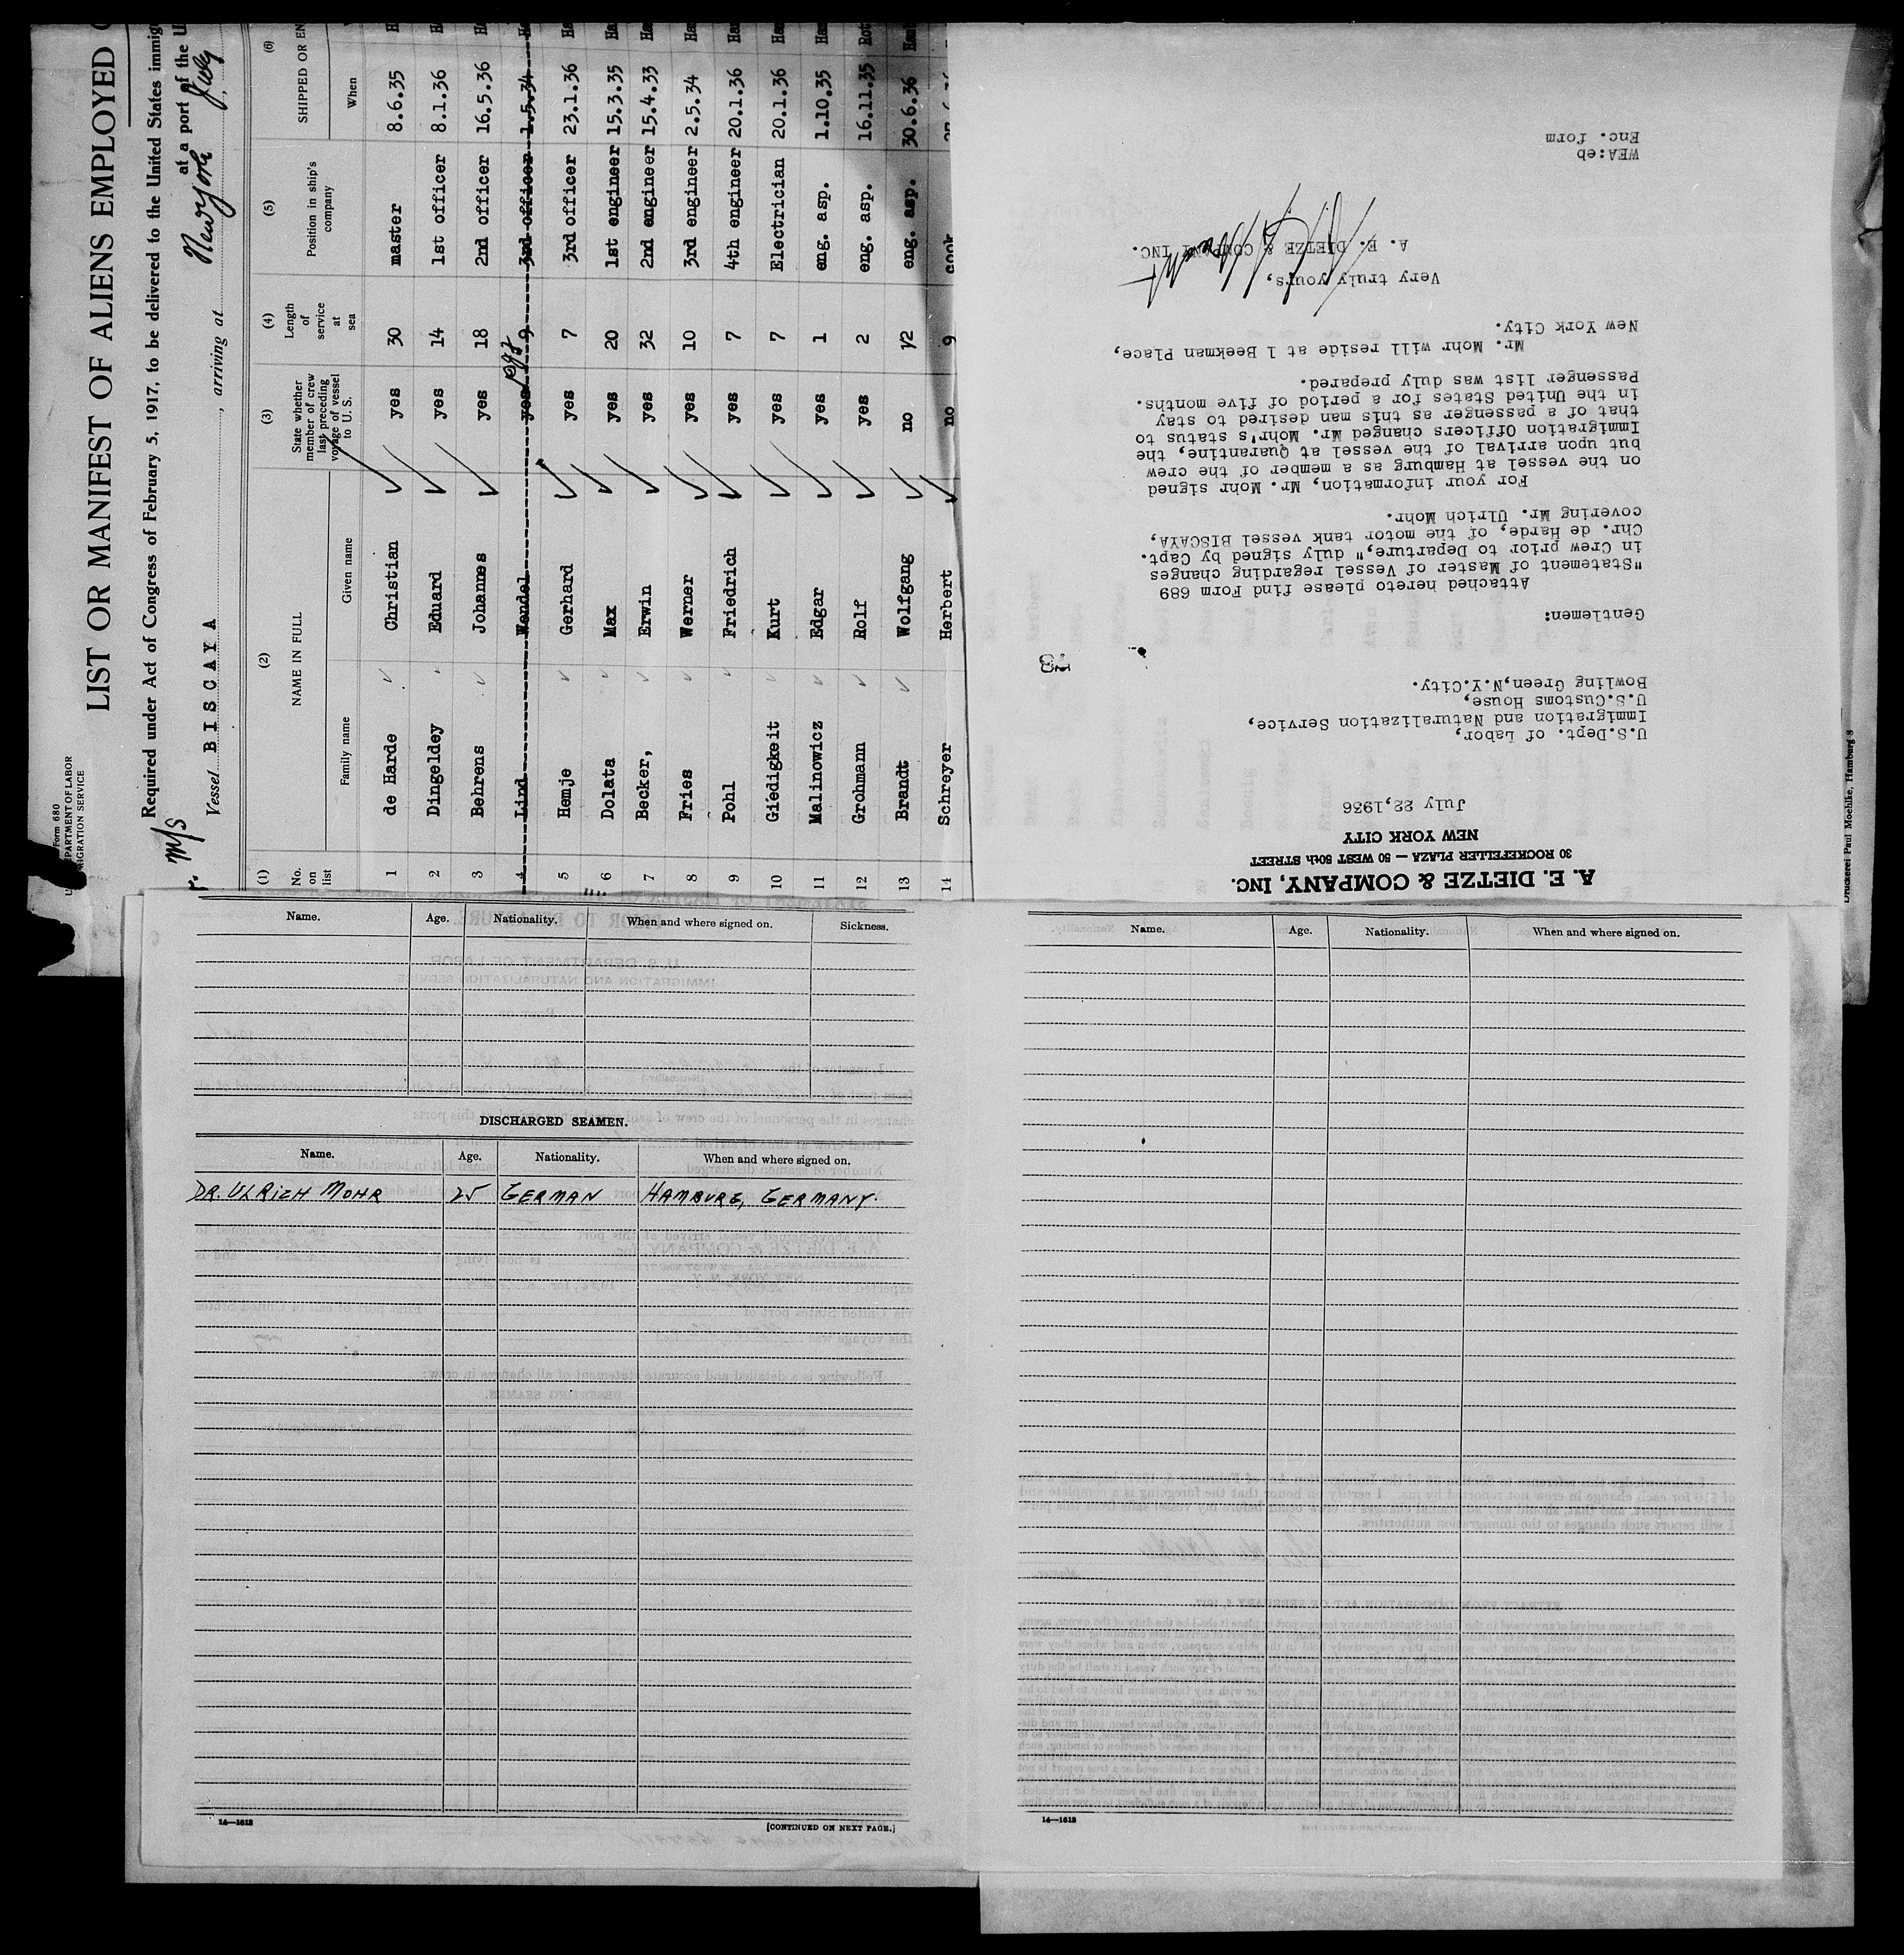 Form 680
IMMIGRATION SERVICE
LIST OR MANIFEST OF ALIENS EMPLOYED
Required under Act of Congress of February 5, 1917, to be delivered to the United States
at a port of the
M/S
Vessel BISCAYA , arriving at New York July
(1) (2) (3) (4) (5) (6)
No. on list NAME IN FULL State whether member of crew last preceding voyage of vessel to U. S. Length of service at sea Position in ship's company SHIPPED OR
Family name Given name When
1 de Harde Christian yes 30 master 8.6.35
2 Dingeldey Eduard yes 14 1st officer 8.1.36
3 Behrens Johannes yes 18 2nd officer 16.5.36
4 Lind Wendel yes 9 3rd officer 1.5.34
5 Hemje Gerhard yes 7 3rd officer 23.1.36
6 Dolata Max yes 20 1st engineer 15.3.35
7 Becker, Erwin yes 32 2nd engineer 15.4.33
8 Fries Werner yes 10 3rd engineer 2.5.34
9 Pohl Friedrich yes 7 4th engineer 20.1.36
10 Giedigkeit Kurt yes 7 Electrician 20.1.36
11 Malinowicz Edgar yes 1 eng. asp. 1.10.35
12 Grohmann Rolf yes 2 eng. asp. 16.11.35
13 Brandt Wolfgang no 1/2 eng. asp. 30.6.36
14 Schreyer Herbert no 9 cook
A. E. DIETZE & COMPANY, INC.
30 ROCKEFELLER PLAZA — 50 WEST 50th STREET
NEW YORK CITY
July 22,1936
U.S.Dept. of Labor,
Immigration and Naturalization Service,
U.S.Customs House,
Bowling Green,N.Y.City.
Gentlemen:
Attached hereto please find Form 689
"Statement of Master of Vessel regarding changes
in Crew prior to Departure," duly signed by Capt.
Chr. de Harde, of the motor tank vessel BISCAYA,
covering Mr. Ulrich Mohr.
For your information, Mr. Mohr signed
on the vessel at Hamburg as a member of the crew
but upon arrival of the vessel at Quarantine, the
Immigration Officers changed Mr. Mohr's status to
that of a passenger as this man desired to stay
in the United States for a period of five months.
Passenger list was duly prepared.
Mr. Mohr will reside at 1 Beekman Place,
New York City.
Very truly yours,
A. E. DIETZE & COMPANY INC.
WEA:eb
Enc. form
Druckerei Paul Moehlke, Hamburg 8
Name. Age. Nationality. When and where signed on. Sickness.
DISCHARGED SEAMEN.
Name. Age. Nationality. When and where signed on.
DR. ULRICH MOHR 25 GERMAN HAMBURG, GERMANY.
14—1613
[CONTINUED ON NEXT PAGE.]
Name. Age. Nationality. When and where signed on.
14—1613